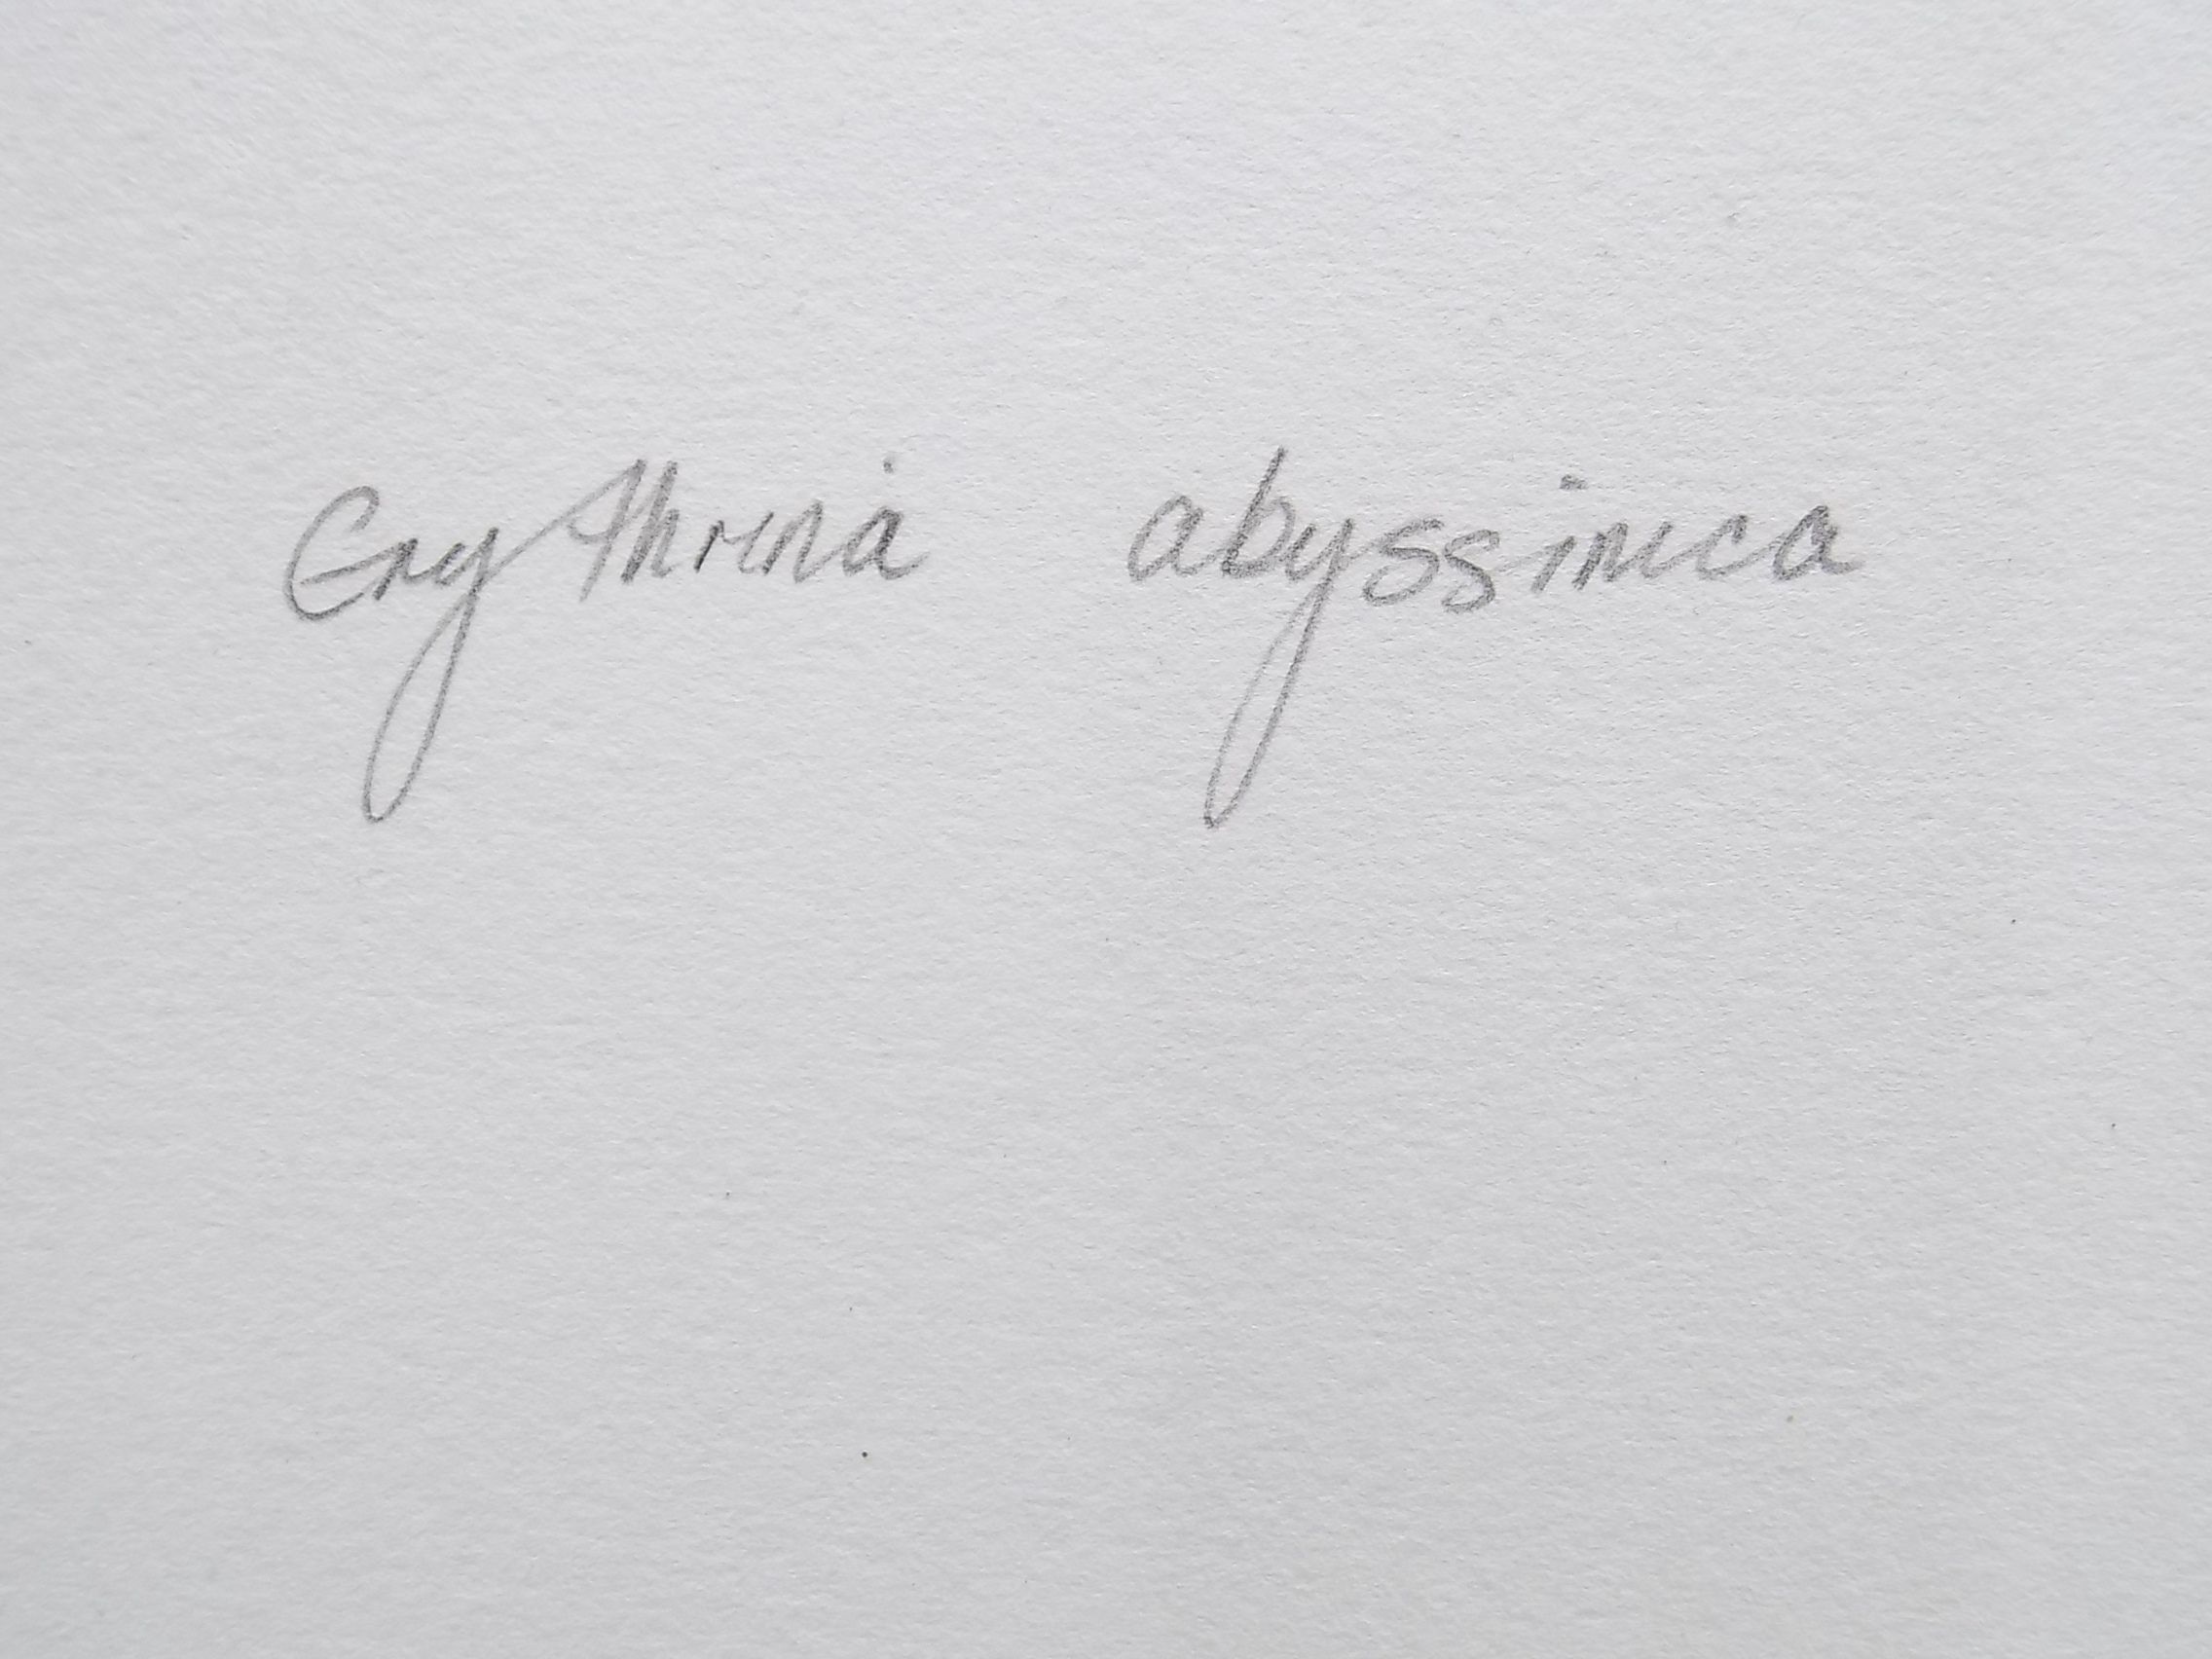 Erythrina abyssinica